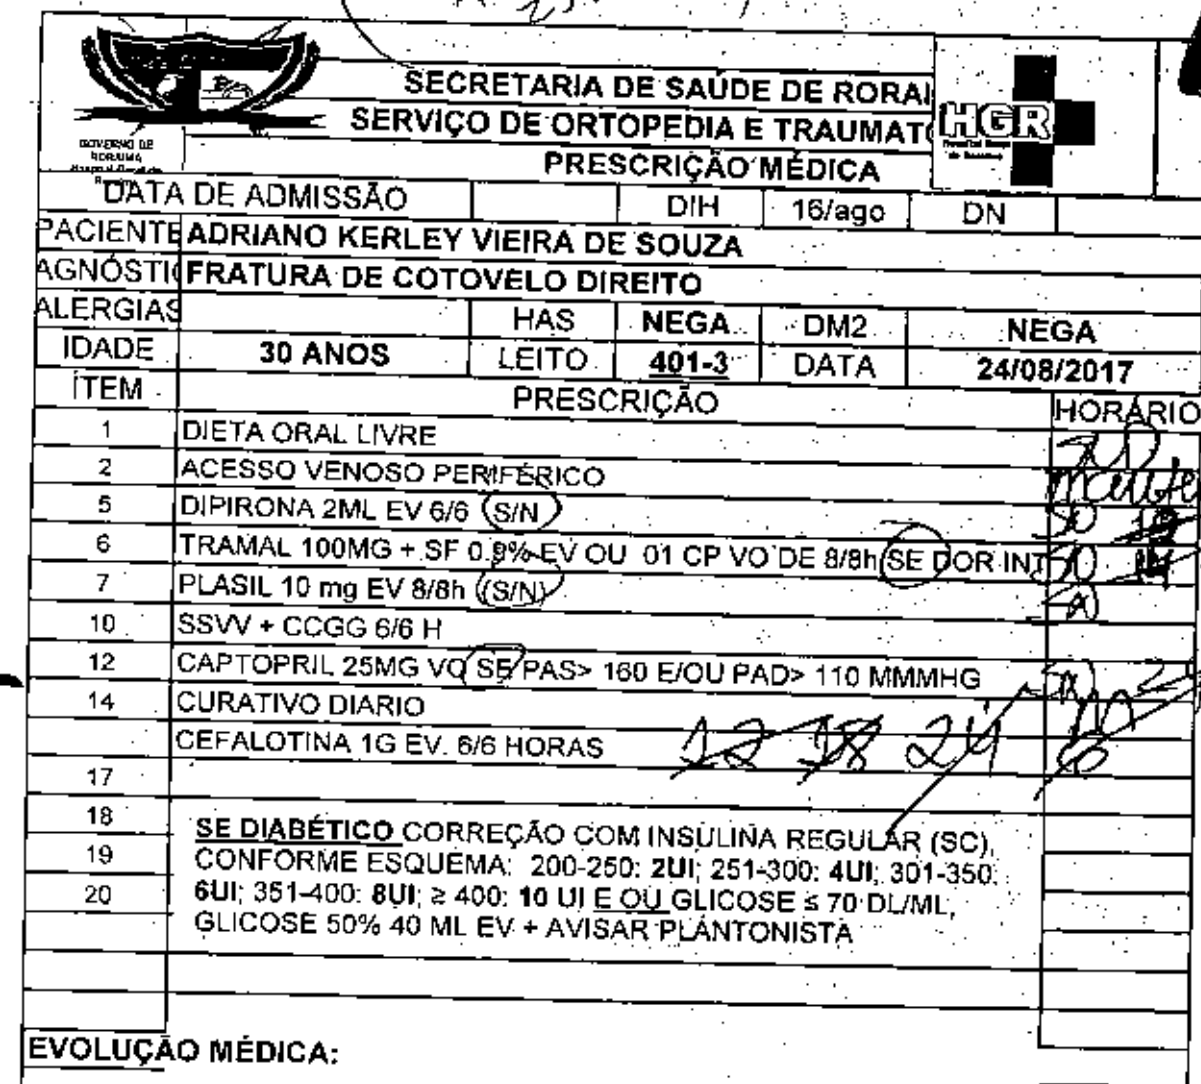 SECRETARIA DE SAÚDE DE RORAI
SERVIÇO DE ORTOPEDIA E TRAUMATO
PRESCRIÇÃO MÉDICA
HGR
GOVERNO DE
RORAIMA
DATA DE ADMISSÃO DIH 16/ago DN
PACIENTE ADRIANO KERLEY VIEIRA DE SOUZA
AGNÓSTI FRATURA DE COTOVELO DIREITO
ALERGIAS HAS NEGA DM2 NEGA
IDADE 30 ANOS LEITO 401-3 DATA 24/08/2017
ÍTEM PRESCRIÇÃO HORÁRIO
1 DIETA ORAL LIVRE
2 ACESSO VENOSO PERIFÉRICO
5 DIPIRONA 2ML EV 6/6 (S/N)
6 TRAMAL 100MG + SF 0.9% EV OU 01 CP VO DE 8/8h SE DOR INT
7 PLASIL 10 mg EV 8/8h (S/N)
10 SSVV + CCGG 6/6 H
12 CAPTOPRIL 25MG VO SE PAS> 160 E/OU PAD> 110 MMMHG
14 CURATIVO DIARIO
CEFALOTINA 1G EV. 6/6 HORAS 12 18 24
17
18 SE DIABÉTICO CORREÇÃO COM INSULINA REGULAR (SC),
19 CONFORME ESQUEMA: 200-250: 2UI; 251-300: 4UI; 301-350:
20 6UI; 351-400: 8UI; ≥ 400: 10 UI E OU GLICOSE ≤ 70 DL/ML,
GLICOSE 50% 40 ML EV + AVISAR PLANTONISTA
EVOLUÇÃO MÉDICA: